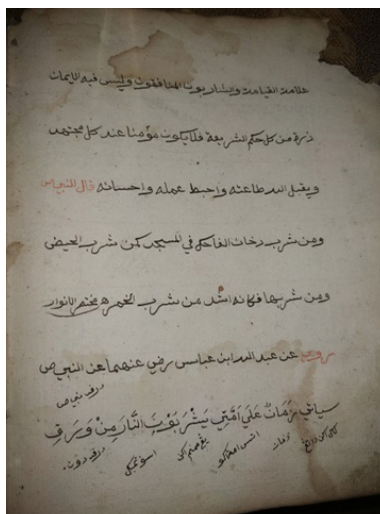 علامت القيامة والشاربون المنافقون وليس فيه الايمان
ذرة من كل حكم الشريعة فلا يكون مؤمنا عند كل مجتهد
ويقبل الله طاعته واحبط عمله واحسانه قال النبي ص
ومن شرب دخان الفاحكم في المسجد كمن شرب الحيض
ومن شربها فكانه اشد من شرب الخمر ه مختصر الانوار
روي عن عبد الله ابن عباس رضي عنهما عن النبي ص
سياتي زمان علي امتي يشربون النار من ورق